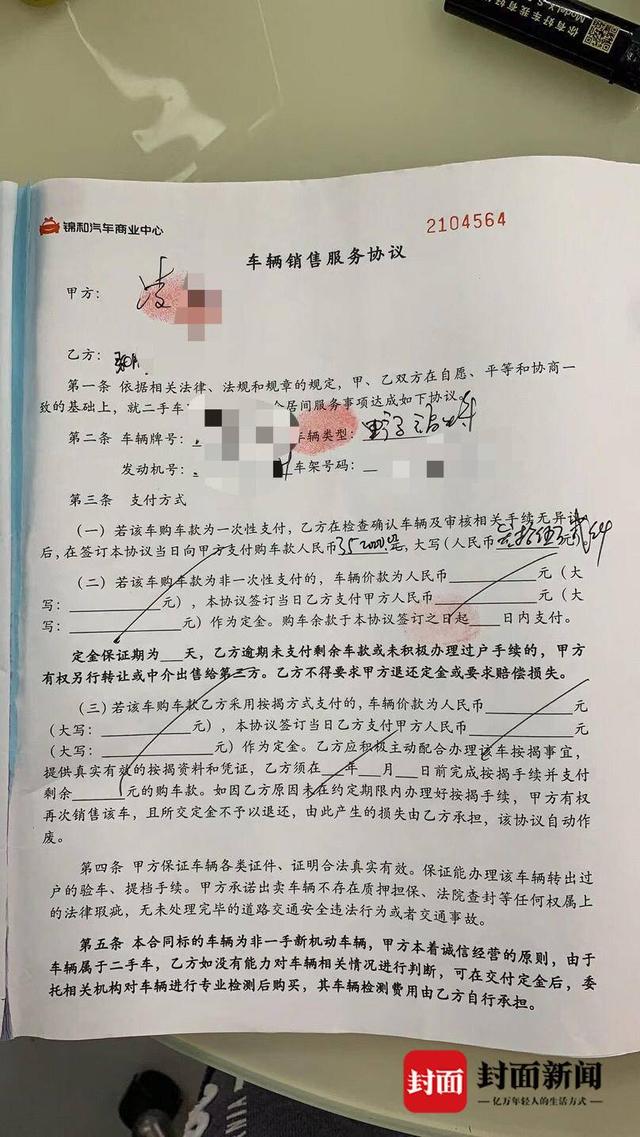 你有好车我有好
Model Y S
锦和汽车商业中心
2104564
车辆销售服务协议
甲方：
乙方：
第一条 依据相关法律、法规和规章的规定，甲、乙双方在自愿、平等和协商一
致的基础上，就二手车 居间服务事项达成如下协议。
第二条 车辆牌号： 车辆类型：
发动机号： 车架号码：
第三条 支付方式
（一）若该车购车款为一次性支付，乙方在检查确认车辆及审核相关手续无异议
后，在签订本协议当日向甲方支付购车款人民币352000元，大写（人民币
（二）若该车购车款为非一次性支付的，车辆价款为人民币____元（大
写：____元），本协议签订当日乙方支付甲方人民币____元（大
写：____元）作为定金。购车余款于本协议签订之日起____日内支付。
定金保证期为___天，乙方逾期未支付剩余车款或未积极办理过户手续的，甲方
有权另行转让或中介出售给第三方。乙方不得要求甲方退还定金或要求赔偿损失。
（三）若该车购车款乙方采用按揭方式支付的，车辆价款为人民币____元
（大写：____元），本协议签订当日乙方支付甲方人民币____元
（大写：____元）作为定金。乙方应积极主动配合办理该车按揭事宜，
提供真实有效的按揭资料和凭证，乙方须在___年___月___日前完成按揭手续并支付
剩余____元的购车款。如因乙方原因未在约定期限内办理好按揭手续，甲方有权
再次销售该车，且所交定金不予以退还，由此产生的损失由乙方承担，该协议自动作
废。
第四条 甲方保证车辆各类证件、证明合法真实有效。保证能办理该车辆转出过
户的验车、提档手续。甲方承诺出卖车辆不存在质押担保、法院查封等任何权属上
的法律瑕疵，无未处理完毕的道路交通安全违法行为或者交通事故。
第五条 本合同标的车辆为非一手新机动车辆，甲方本着诚信经营的原则，由于
车辆属于二手车，乙方如没有能力对车辆相关情况进行判断，可在交付定金后，委
托相关机构对车辆进行专业检测后购买，其车辆检测费用由乙方自行承担。
封面 封面新闻
亿万年轻人的生活方式